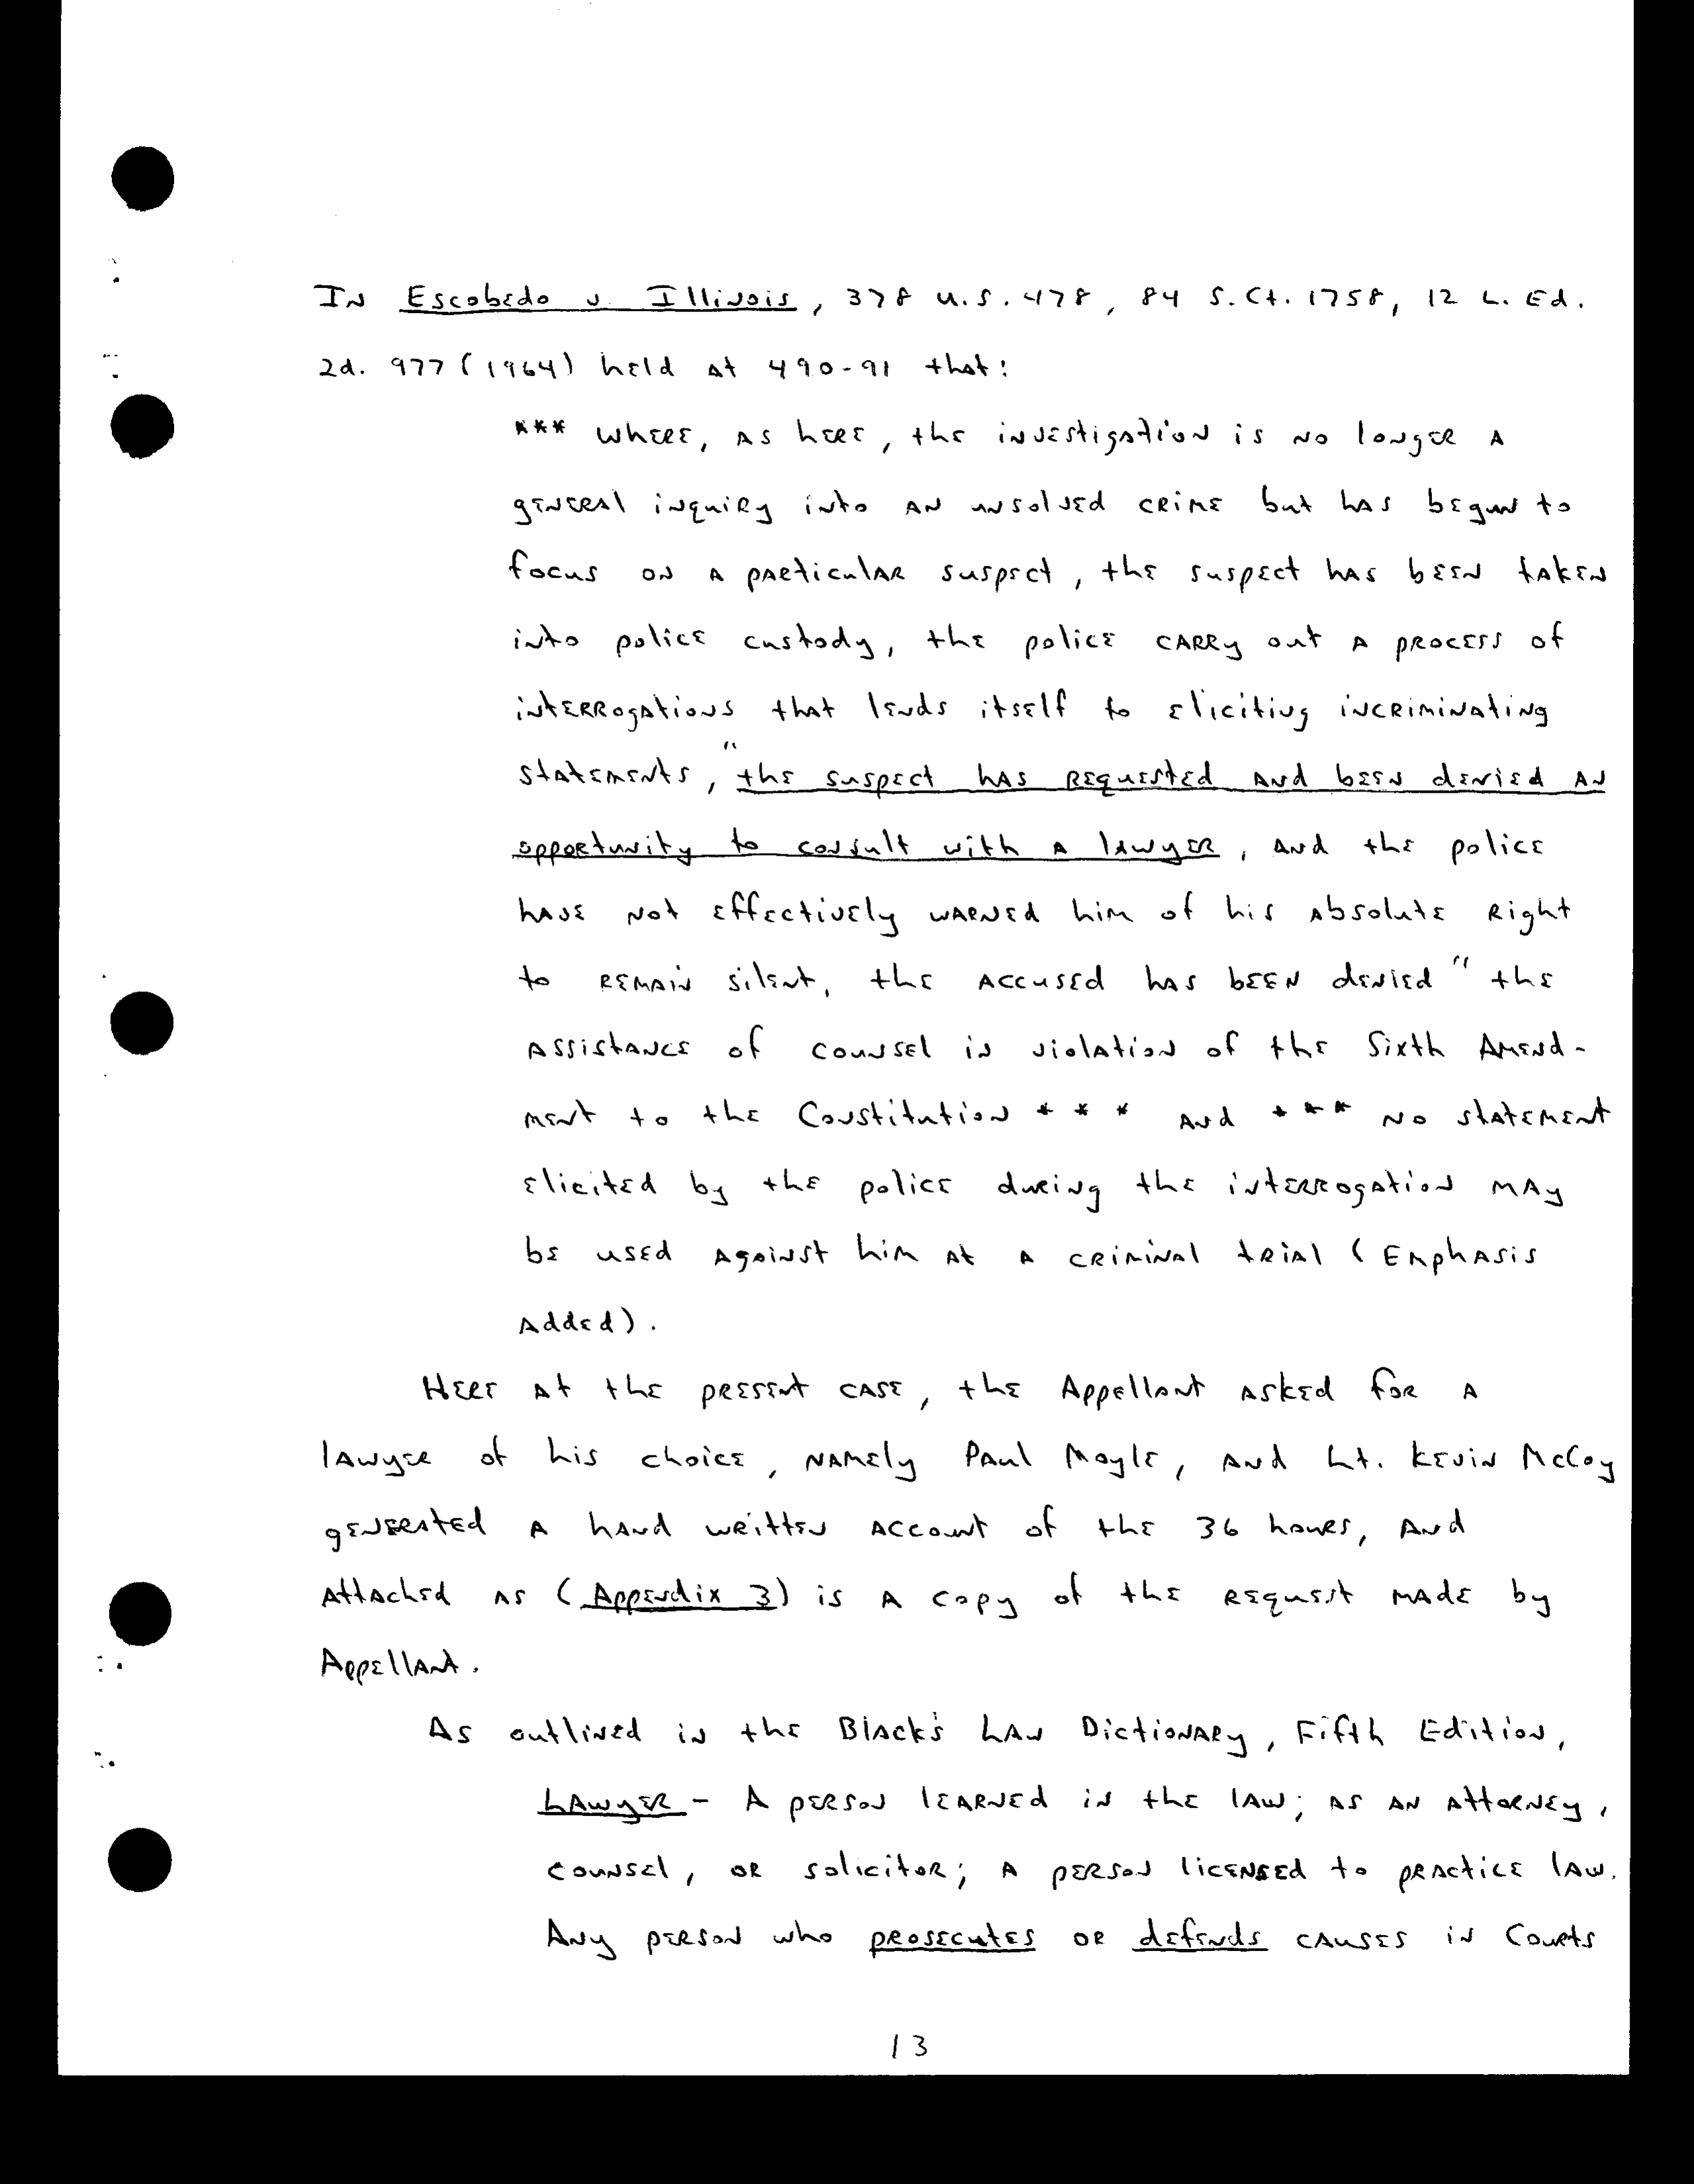 In Escobedo v. Illinois, 378 U.S. 478, 84 S.Ct. 1758, 12 L. Ed.
2d. 977 (1964) held at 490-91 that:
*** where, as here, the investigation is no longer a
general inquiry into an unsolved crime but has begun to
focus on a particular suspect, the suspect has been taken
into police custody, the police carry out a process of
interrogations that lends itself to eliciting incriminating
statements, "the suspect has requested and been denied an
opportunity to consult with a lawyer, and the police
have not effectively warned him of his absolute right
to remain silent, the accused has been denied" the
assistance of counsel in violation of the Sixth Amend-
ment to the Constitution * * * and *** no statement
elicited by the police during the interrogation may
be used against him at a criminal trial (Emphasis
Added).
Here at the present case, the Appellant asked for a
lawyer of his choice, namely Paul Moyle, and Lt. Kevin McCoy
generated a hand written account of the 36 hours, and
attached as (Appendix 3) is a copy of the request made by
Appellant.
As outlined in the Black's Law Dictionary, Fifth Edition,
Lawyer - A person learned in the law; as an attorney,
counsel, or solicitor; a person licensed to practice law.
Any person who prosecutes or defends causes in Courts
13